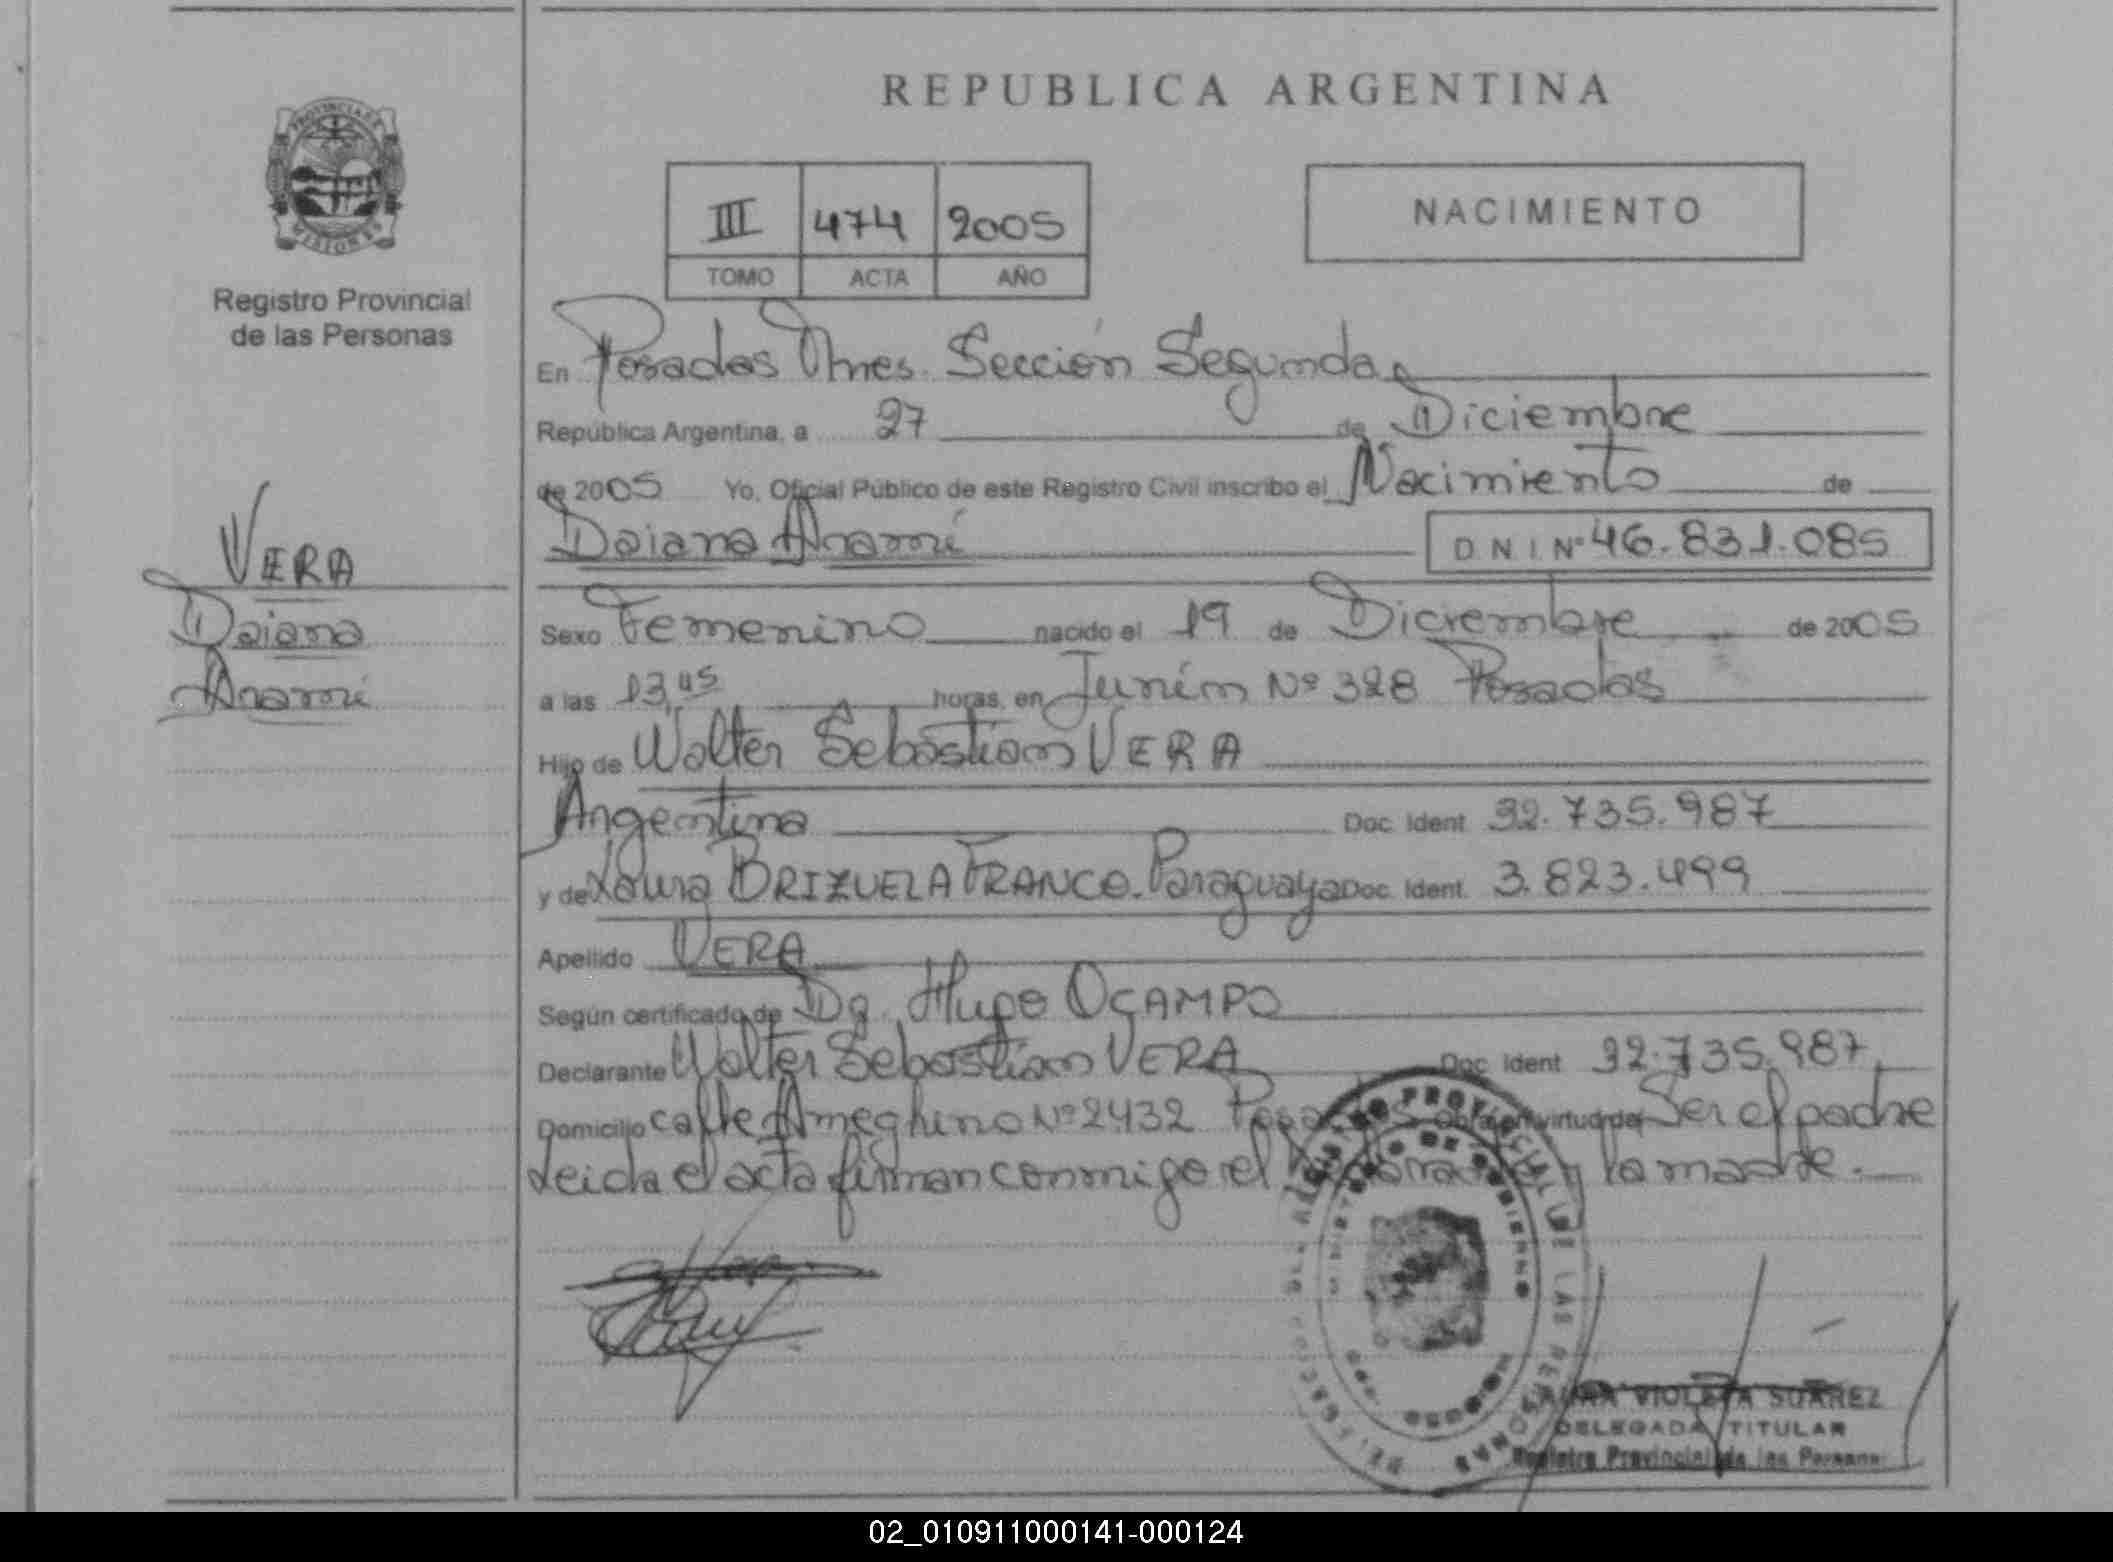 REPUBLICA ARGENTINA
PROVINCIA DE
MISIONES
Registro Provincial
de las Personas
III 474 2005
TOMO ACTA AÑO
NACIMIENTO
En Posadas Mnes. Sección Segunda
República Argentina, a 27 de Diciembre
de 2005 Yo, Oficial Público de este Registro Civil inscribo el Nacimiento de
Daiana Anamí D N I Nº 46.831.085
VERA
Daiana
Anamí
Sexo Femenino nacido el 19 de Diciembre de 2005
a las 13,45 horas, en Junín Nº 328 Posadas
Hijo de Walter Sebastian VERA
Argentina Doc. Ident. 32.735.987
y de Laura BRIZUELA FRANCO. Paraguaya Doc. Ident. 3.823.499
Apellido VERA
Según certificado de Dr. Hugo OCAMPO
Declarante Walter Sebastian VERA Doc. Ident. 32.735.987
Domicilio calle Ameghino Nº 2432 Posadas Obra en virtud de Ser el padre
Leida el acta firman conmigo el y la madre.
REGISTRO PROVINCIAL DE LAS PERSONAS
MINISTERIO DE GOBIERNO
VIOLETA SUAREZ
DELEGADA TITULAR
Registro Provincial de las Personas
02_010911000141-000124